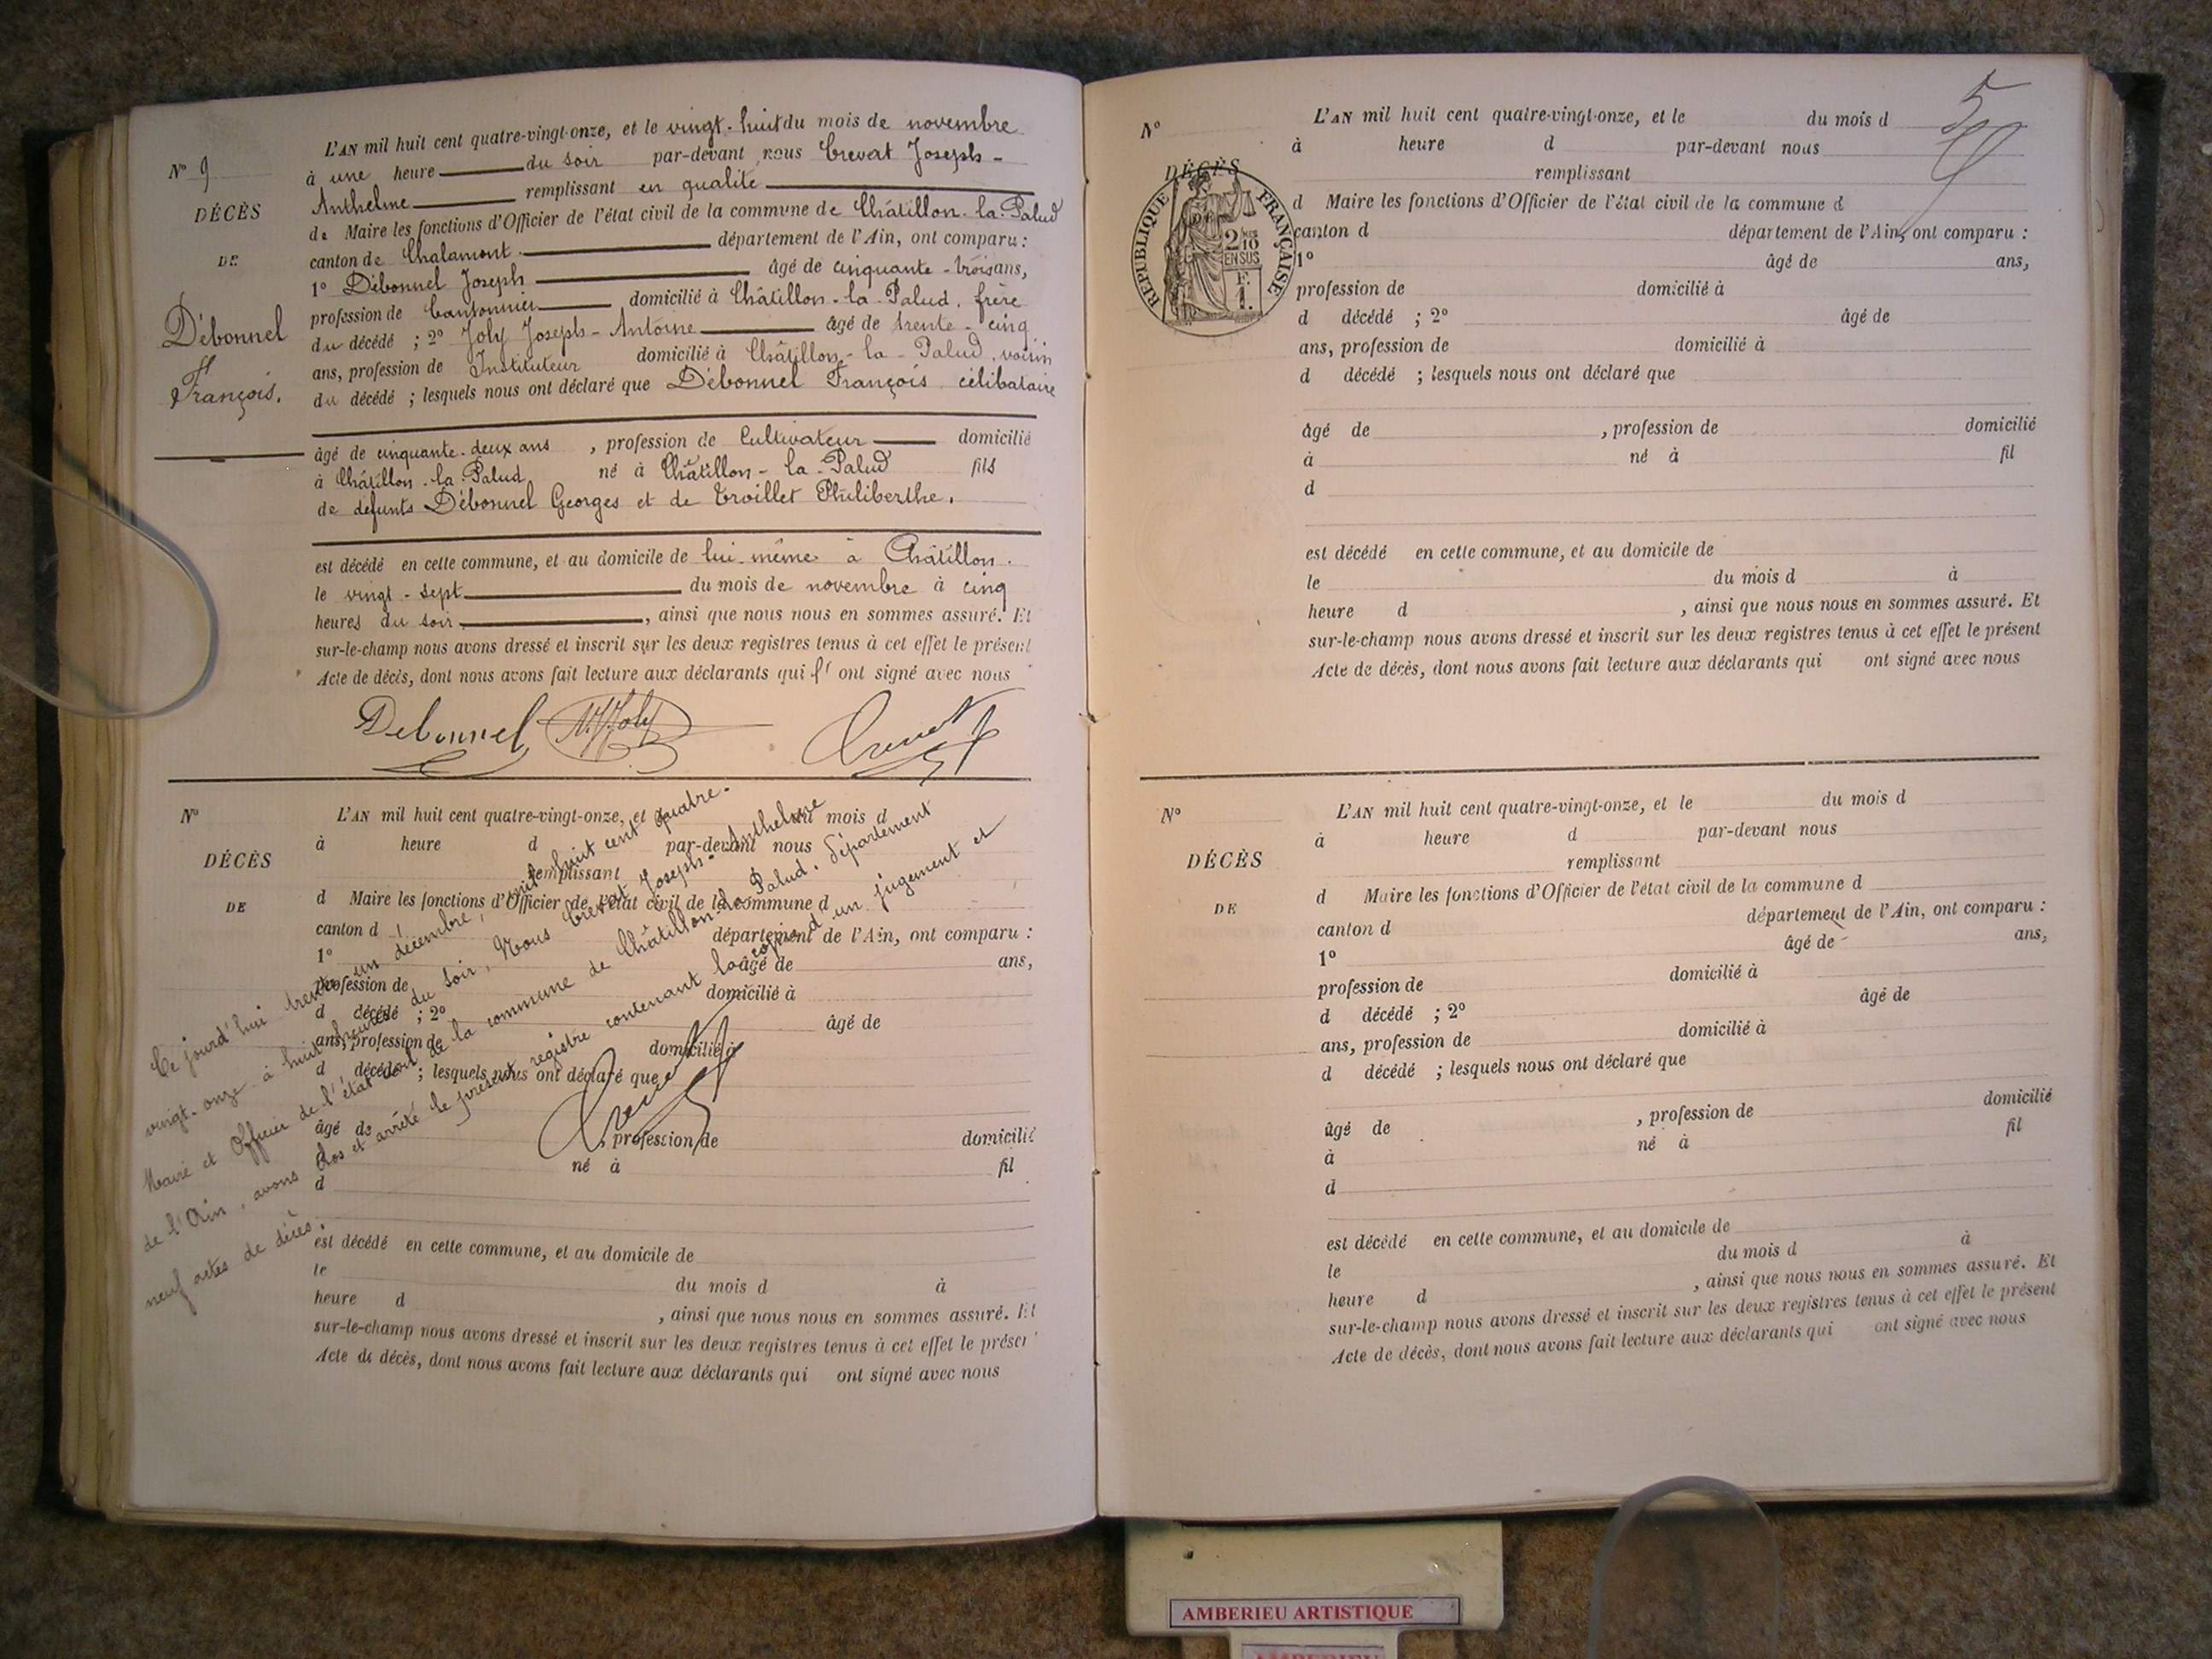 N° 9
DÉCÈS
DE
Débonnel
François.
L'AN mil huit cent quatre-vingt-onze, et le vingt-huit du mois de novembre
à une heure du soir par-devant nous Crevat Joseph-
Anthelme remplissant en qualité
de Maire les fonctions d'Officier de l'état civil de la commune de Châtillon-la-Palud
canton de Chalamont. département de l'Ain, ont comparu :
1° Débonnel Joseph âgé de cinquante-trois ans,
profession de Cantonnier domicilié à Châtillon-la-Palud, frère
du décédé ; 2° Joly Joseph-Antoine âgé de trente-cinq
ans, profession de Instituteur domicilié à Châtillon-la-Palud, voisin
du décédé ; lesquels nous ont déclaré que Débonnel François célibataire
âgé de cinquante-deux ans , profession de Cultivateur domicilié
à Châtillon-la-Palud né à Châtillon-la-Palud fils
de défunts Débonnel Georges et de Trvillet Philiberthe.
est décédé en cette commune, et au domicile de lui-même à Châtillon.
le vingt-sept du mois de novembre à cinq
heures du soir , ainsi que nous nous en sommes assuré. Et
sur-le-champ nous avons dressé et inscrit sur les deux registres tenus à cet effet le présent
Acte de décès, dont nous avons fait lecture aux déclarants qui l' ont signé avec nous
Debonnel Joly Crevat
N°
DÉCÈS
DE
L'AN mil huit cent quatre-vingt-onze, et du mois d
à heure d par-devant nous
remplissant
d Maire les fonctions d'Officier de l'état civil de la commune d
canton d département de l'Ain, ont comparu :
1° âgé de ans,
profession de domicilié à
d décédé ; 2° âgé de
ans, profession de domicilié à
d décédé ; lesquels nous ont déclaré que
âgé de , profession de domicilié
à né à fil
d
est décédé en cette commune, et au domicile de
le du mois d à
heure d , ainsi que nous nous en sommes assuré. Et
sur-le-champ nous avons dressé et inscrit sur les deux registres tenus à cet effet le présent
Acte de décès, dont nous avons fait lecture aux déclarants qui ont signé avec nous
Ce jourd'hui trente un décembre, mil huit cent quatre-
vingt-onze à huit heures du soir, Nous Crevat Joseph-Anthelme
Maire et Officier de l'état civil de la commune de Châtillon-la-Palud. département
de l'Ain, avons clos et arrêté le présent registre contenant la copie d'un jugement et
neuf actes de décès.
Crevat
5
N°
DÉCÈS
RÉPUBLIQUE FRANÇAISE
2/10
EN SUS
F.
1.
L'AN mil huit cent quatre-vingt-onze, et le du mois d
à heure d par-devant nous
remplissant
d Maire les fonctions d'Officier de l'état civil de la commune d
canton d département de l'Ain, ont comparu :
1° âgé de ans,
profession de domicilié à
d décédé ; 2° âgé de
ans, profession de domicilié à
d décédé ; lesquels nous ont déclaré que
âgé de , profession de domicilié
à né à fil
d
est décédé en cette commune, et au domicile de
le du mois d à
heure d , ainsi que nous nous en sommes assuré. Et
sur-le-champ nous avons dressé et inscrit sur les deux registres tenus à cet effet le présent
Acte de décès, dont nous avons fait lecture aux déclarants qui ont signé avec nous
N°
DÉCÈS
DE
L'AN mil huit cent quatre-vingt-onze, et le du mois d
à heure d par-devant nous
remplissant
d Maire les fonctions d'Officier de l'état civil de la commune d
canton d département de l'Ain, ont comparu :
1° âgé de ans,
profession de domicilié à
d décédé ; 2° âgé de
ans, profession de domicilié à
d décédé ; lesquels nous ont déclaré que
âgé de , profession de domicilié
à né à fil
d
est décédé en cette commune, et au domicile de
le du mois d à
heure d , ainsi que nous nous en sommes assuré. Et
sur-le-champ nous avons dressé et inscrit sur les deux registres tenus à cet effet le présent
Acte de décès, dont nous avons fait lecture aux déclarants qui ont signé avec nous
AMBERIEU ARTISTIQUE
AMBERIEU